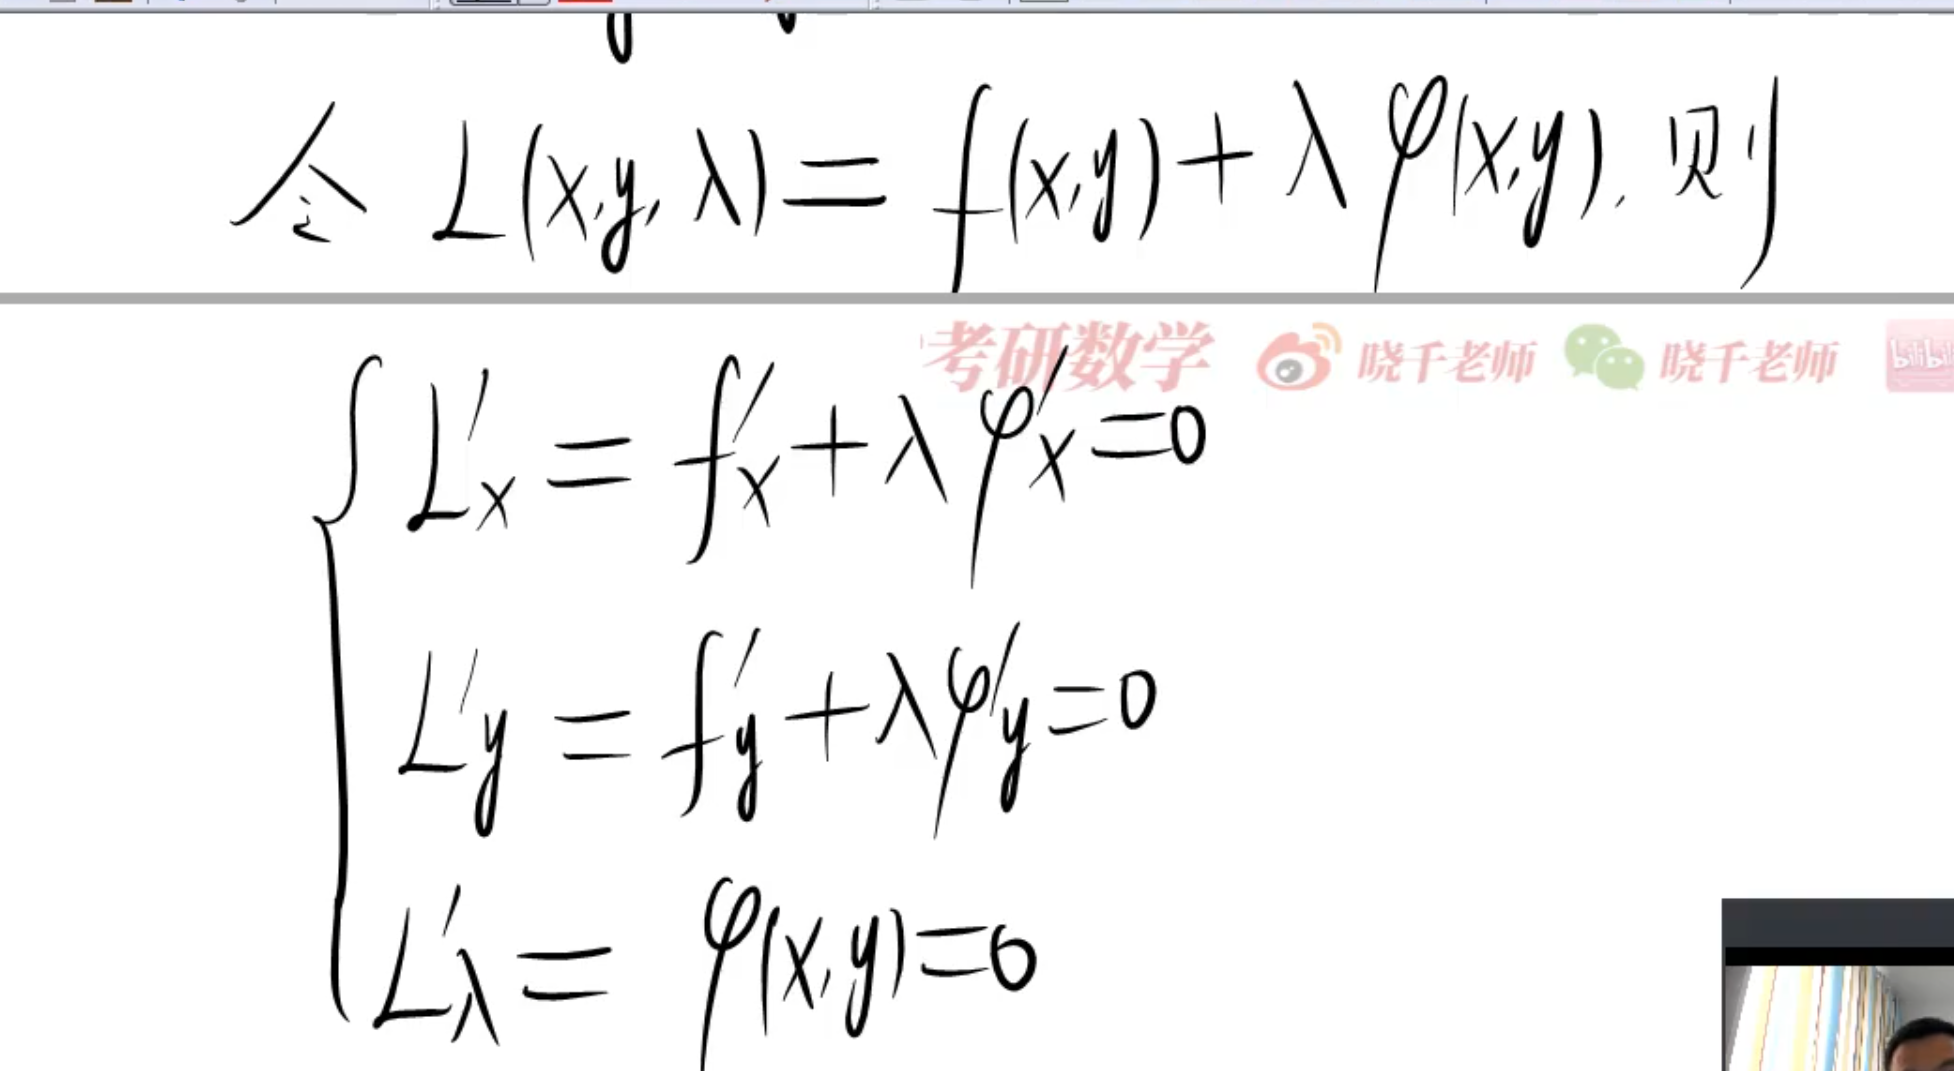 令 L(x,y,λ)= f(x,y)+λφ(x,y), 则
考研数学 晓千老师 晓千老师 bilibi
L'x = f'x+λφ'x=0
L'y = f'y+λφ'y=0
L'λ = φ(x,y)=0